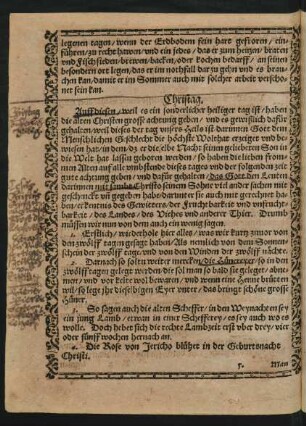 legenen tagen / wenn der Erdbodem sein hart gefroren / ein-
führen / zu recht hawen / und ein jedes / das er zum heigen / braten
und Fisch sieden / brewen / backen / oder kochen bedarff / an seinen
besondern ort legen / das er im nothfall dar zu gehn und es brau-
chen kan / damit er im Sommer auch mit solcher arbeit verscho-
net sein kan.
Christag.
Auff diesen / weil es ein sonderlicher heiliger tag ist / haben
die alten Christen grosse achtung geben / und es gewißlich dafür
gehalten / weil dieses der tag unsers Heils ist darinnen Gott dem
Menschlichen Geschlecht die höchste Wolthat erzeiget und be-
wiesen hat / in dem das er dieselbe Nacht seinen geliebeten Son in
die Welt hat lassen geboren werden / so haben die lieben from-
men Alten auff alle umbstende dieses tages und der folgenden zeit
gute achtung geben / und dafür gehalten / das Gott den Leuten
darinnen mit Christo seinem Sohne viel ander sachen mit
geschencket und gegeben habe / darunter sie auch mit gerechnet ha-
ben / erkentnis des Gewitters / der Fruchtbarkeit und unfrucht-
barkeit / des Landes / des Viehes und anderer Thier. Drumb
müssen wir nun von dem auch ein wenig sagen.
Erstlich / widerhole hie alles / was wir kurtz zuvor von
den zwölff tagen gesagt haben / Als nemlich von dem Sonnen-
schein der zwölff tage / und von den Winden der zwölff nächte.
2. Darnach so solt ir weiter mercken / die Hünereyer / so in den
zwölff tagen gelegt werden / die sol man so bald sie geleget / abne-
men / und vor kelte wol bewaren / und wenn eine Henne brüten
wil / so lege ihr dieselbigen Eyer unter / das bringt schöne grosse
Hüner.
3. So sagen auch die alten Scheffer / in den Weynachten sey
ein jung Lamb / etwan in einer Schefferey / es sey auch wo es
wolle. Doch hebet sich die rechte Lambzeit erst uber drey / vier
oder fünff wochen hernach an.
4. Die Rose von Jericho blühet in der Geburtsnacht
Christi.
5. Man